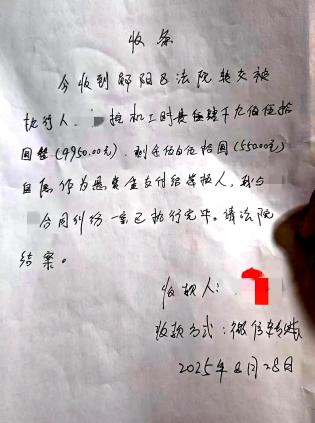 收条
今收到郧阳区法院转交被
执行人 挖机工时费 仟九佰伍拾
圆整(9950.00元)。剩余伍佰伍拾圆(550.00元)
自愿作为悬赏金支付给举报人,我与
合同纠纷一案已执行完毕。请法院
结案。
收款人:
收款方式:微信转账
2025年8月28日